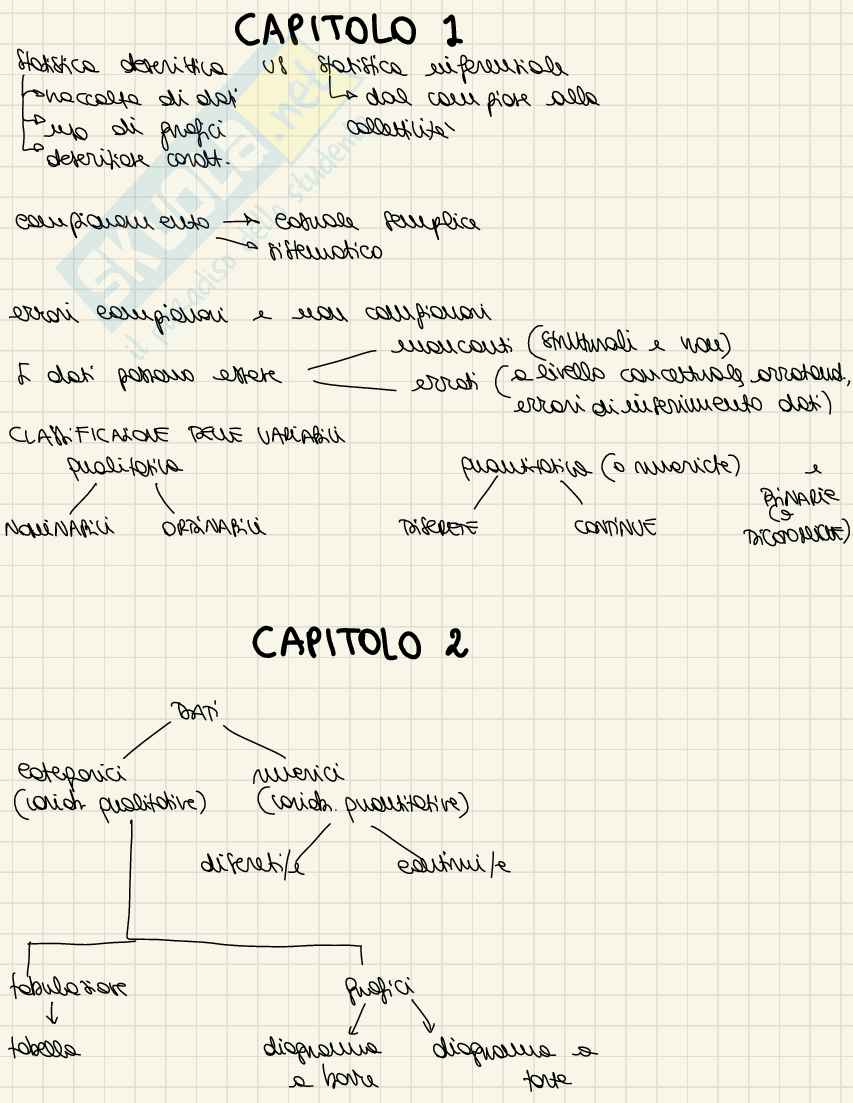 CAPITOLO 1
statistica descrittiva vs statistica inferenziale
raccolta di dati
dal campione alla
uso di grafici
collettività
descrizione caratt.
campionamento → casuale semplice
sistematico
errori campionari e non campionari
mancanti (strutturali e non)
I dati possono essere
errati (a livello concettuale, arrotond,
errori di inserimento dati)
CLASSIFICAZIONE DELLE VARIABILI
qualitativa
quantitativa (o numeriche) e
BINARIE
(o
NOMINABILI ORDINABILI DISCRETE CONTINUE DICOTOMICHE)
CAPITOLO 2
DATI
categorici numerici
(variab. qualitative) (variab. quantitative)
discreti/e continui/e
tabulazione grafici
tabella diagramma diagramma a
a barre torta
skuola.net
il paradiso dello studente